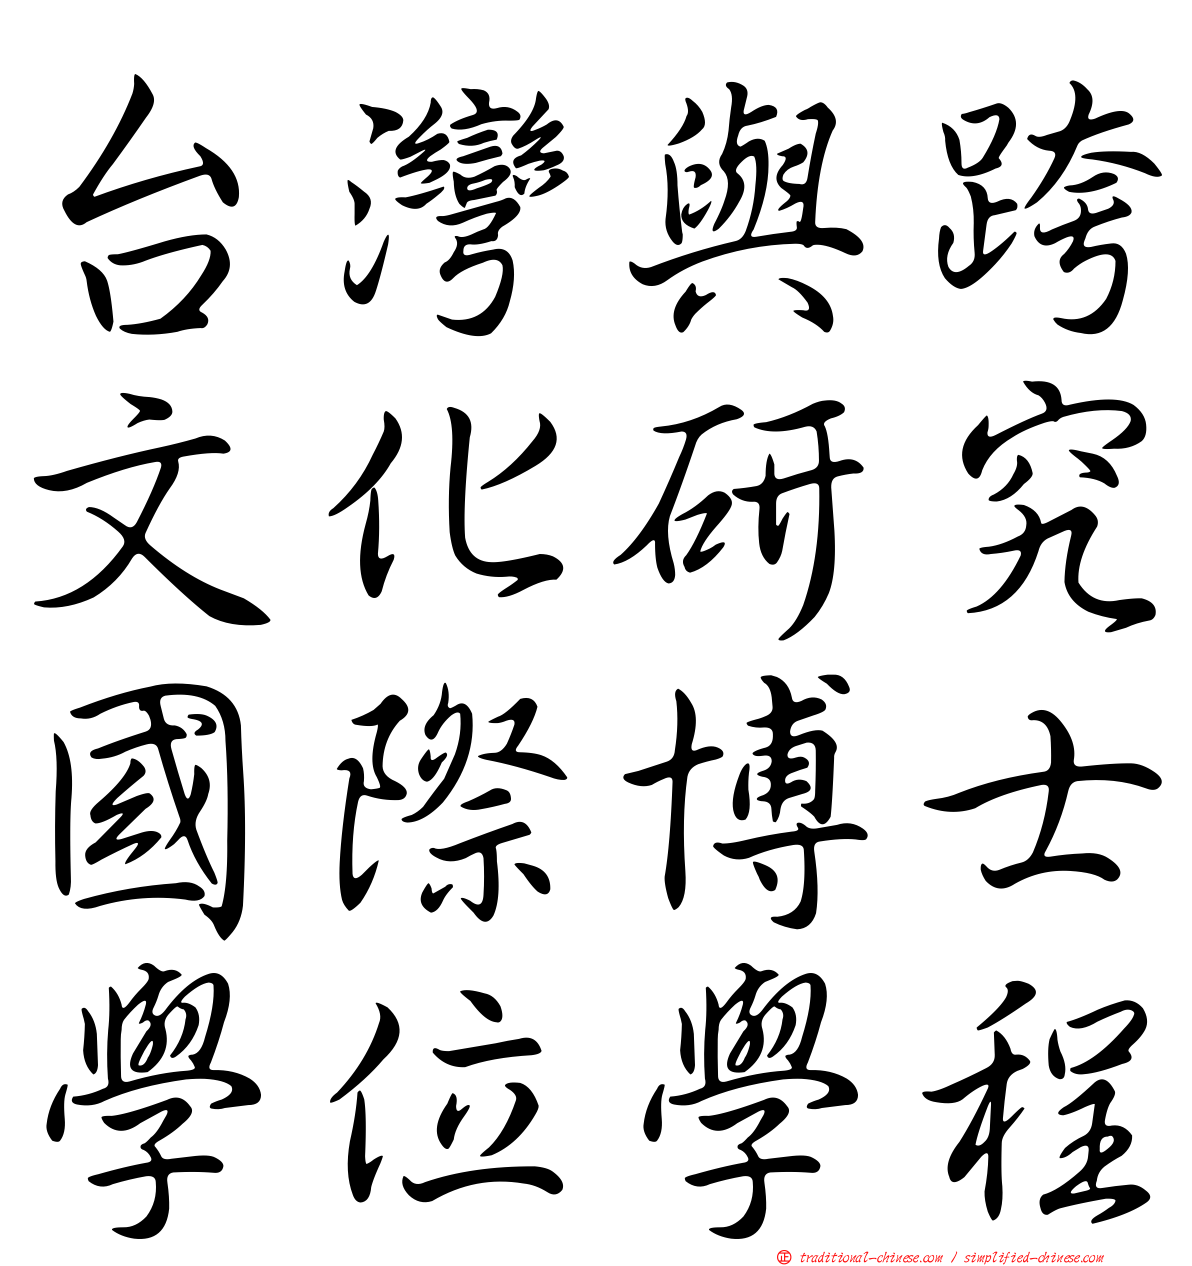 台灣與跨
文化研究
國際博士
學位學程
正 traditional-chinese.com / simplified-chinese.com